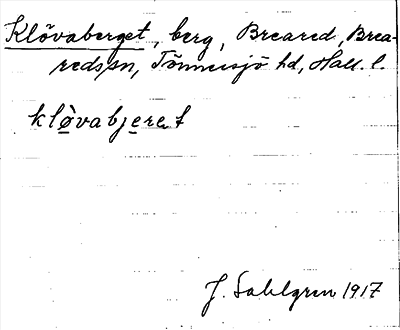 Klövaberget, berg, Breared, Brea-
reds sn, Tönnersjö hd, Hall. l.
kløvabjeret
J. Sahlgren 1917